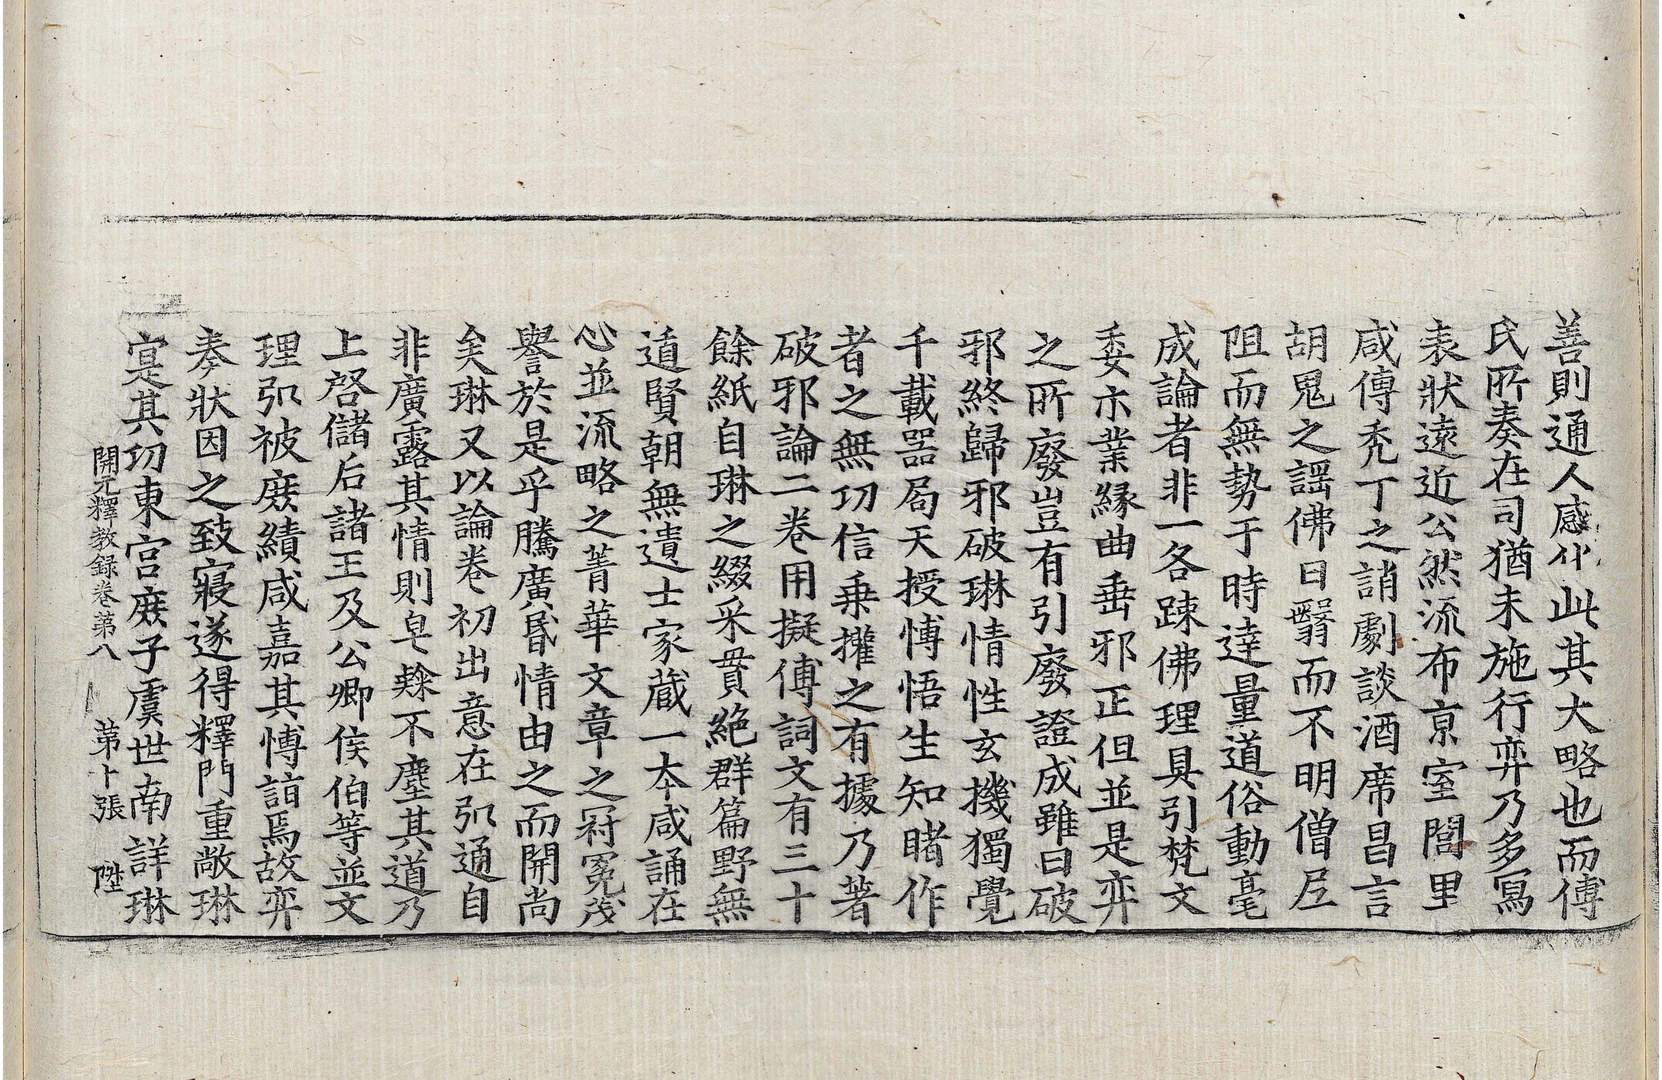 善則通人感化此其大略也而傅
氏所奏在司猶未施行弈乃多寫
表狀遠近公然流布京室閭里
咸傳禿丁之誚劇談酒席昌言
胡鬼之謡佛日翳而不明僧尼
阻而無勢于時達量道俗動毫
成論者非一各踈佛理具引梵文
委示業緣曲垂邪正但並是弈
之所廢豈有引廢證成雖曰破
邪終歸邪破琳情性玄機獨覺
千載器局天授博悟生知睹作
者之無功信乗權之有據乃著
破邪論二卷用擬傅詞文有三十
餘紙自琳之綴采貫絶群篇野無
遁賢朝無遺士家蔵一本咸誦在
心並流略之菁華文章之冠冕茂
譽於是乎騰廣昏情由之而開尚
矣琳又以論卷初出意在弘通自
非廣露其情則皂𧝓不塵其道乃
上啓儲后諸王及公卿侯伯等並文
理弘被庶績咸嘉其博詣焉故弈
奏狀因之致寢遂得釋門重敞琳
寔其功東宮庶子虞世南詳琳
開元釋教録卷第八 第十張 陞